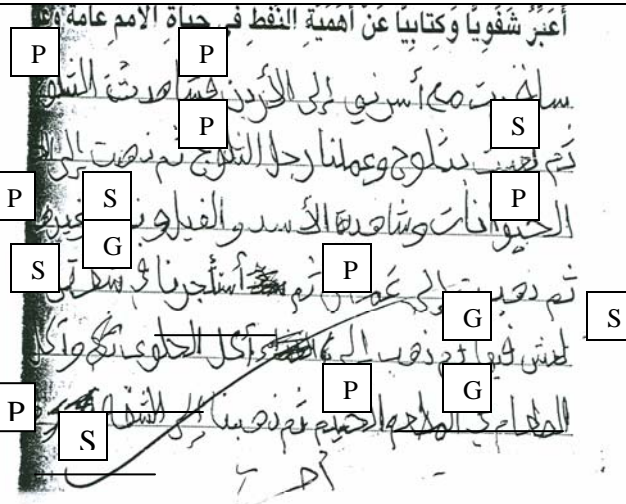 أُعَبِّرُ شَفَوِيًّا وَكِتَابِيًّا عَنْ أَهَمِّيَّةِ النَّفْطِ فِي حَيَاةِ الأُمَمِ عَامَّةً
P P
سافرت مع أسرتي إلى الأردن فشاهدت
P S
ثم لعبت بثلوج وعملنا رجل الثلوج ثم ذهبت إلى
P S P
الحيوانات وشاهدة الأسد والفيل
G
S P
ثم ذهبت إلى عمان ثم أستأجرنا في
G S
فيها ثم ذهب إلى أكل الحلوى وأكل
P P G
الطعام في المطعم ثم ذهبنا إلى الشقة
S